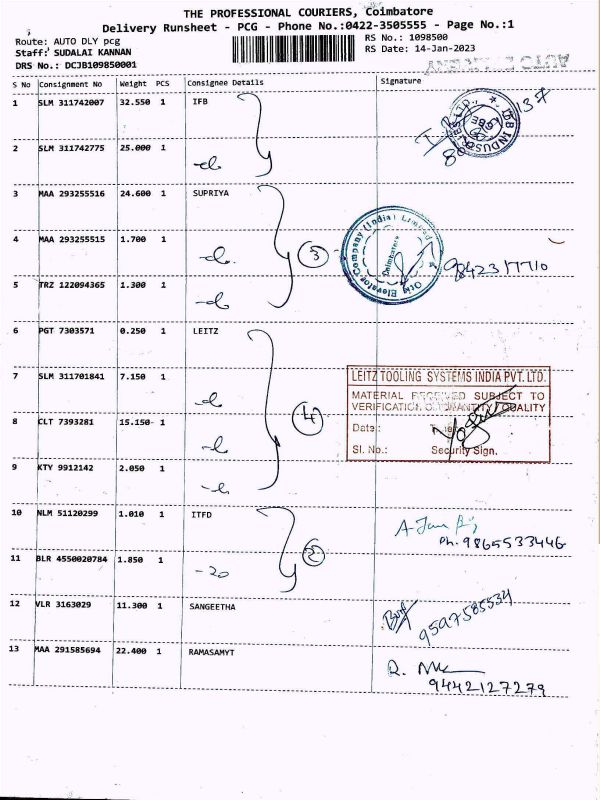 THE PROFESSIONAL COURIERS, Coimbatore
Delivery Runsheet - PCG - Phone No.:0422-3505555 - Page No.:1
Route: AUTO DLY pcg
RS No.: 1098500
Staff: SUDALAI KANNAN
RS Date: 14-Jan-2023
DRS No.: DCJB109850001
S No Consignment No Weight PCS Consignee Details Signature
1 SLM 311742007 32.550 1 IFB
2 SLM 311742775 25.000 1
3 MAA 293255516 24.600 1 SUPRIYA
4 MAA 293255515 1.700 1
3
9842317710
5 TRZ 122094365 1.300 1
6 PGT 7303571 0.250 1 LEITZ
7 SLM 311701841 7.150 1
LEITZ TOOLING SYSTEMS INDIA PVT. LTD.
MATERIAL RECEIVED SUBJECT TO
VERIFICATION OF QUANTITY / QUALITY
4
8 CLT 7393281 15.150 1
Date :
Sl. No.: Security Sign.
9 KTY 9912142 2.050 1
10 NLM 51120299 1.010 1 ITFD
Ph. 9865533446
2
11 BLR 4550020784 1.850 1
12 VLR 3163029 11.300 1 SANGEETHA
9597585534
13 MAA 291585694 22.400 1 RAMASAMYT
9442127279